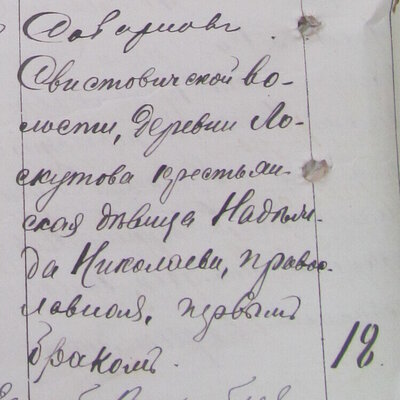 Свистовической во-
лости, деревни Ло-
скутова крестьян-
ская дѣвица Надежи-
да Николаева, право-
славная, первымъ
бракомъ.
18